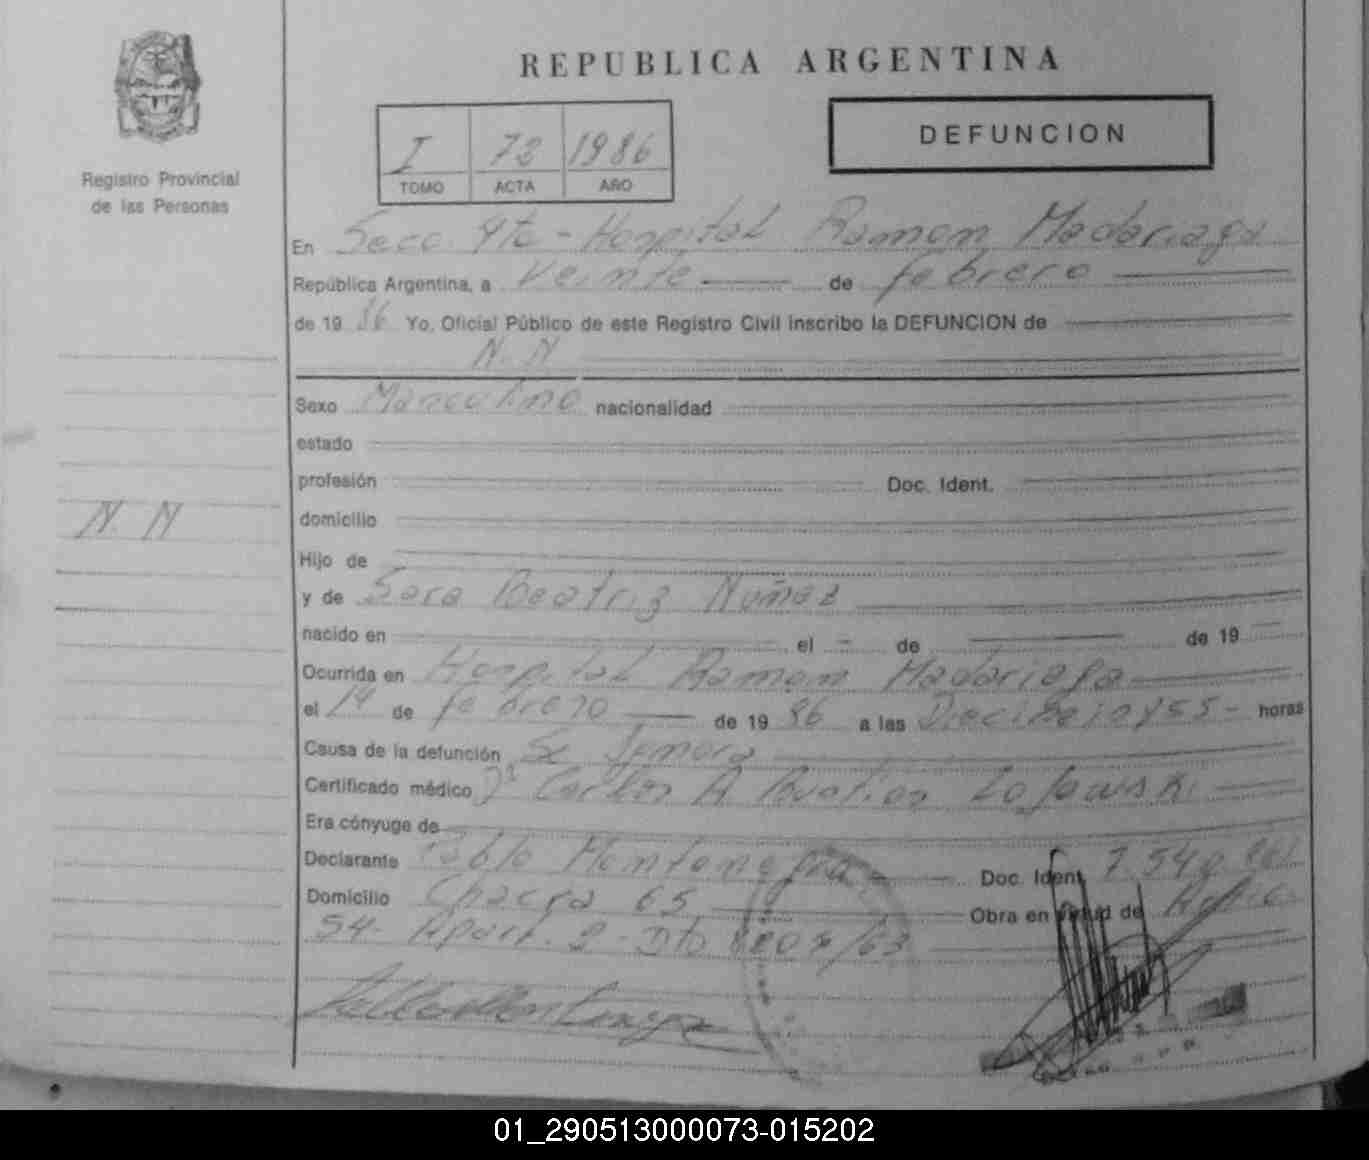 REPUBLICA ARGENTINA
Registro Provincial
de las Personas
I 72 1986
TOMO ACTA AÑO
DEFUNCION
En Secc. 4ta - Hospital Ramon Madariaga
República Argentina, a Veinte de febrero
de 19 86 Yo, Oficial Público de este Registro Civil inscribo la DEFUNCION de
N. N
Sexo Masculino nacionalidad
estado
profesión Doc. Ident.
N. N
domicilio
Hijo de
y de Sara Beatriz Nuñez
nacido en el de de 19
Ocurrida en Hospital Ramon Madariaga
el 14 de febrero de 19 86 a las y 55 - horas
Causa de la defunción
Certificado médico Dr Carlos A
Era cónyuge de
Declarante Pablo Doc. Ident.
Domicilio Chacra 65 Obra en virtud de
54 - Apart. 2 - Dto
01_290513000073-015202